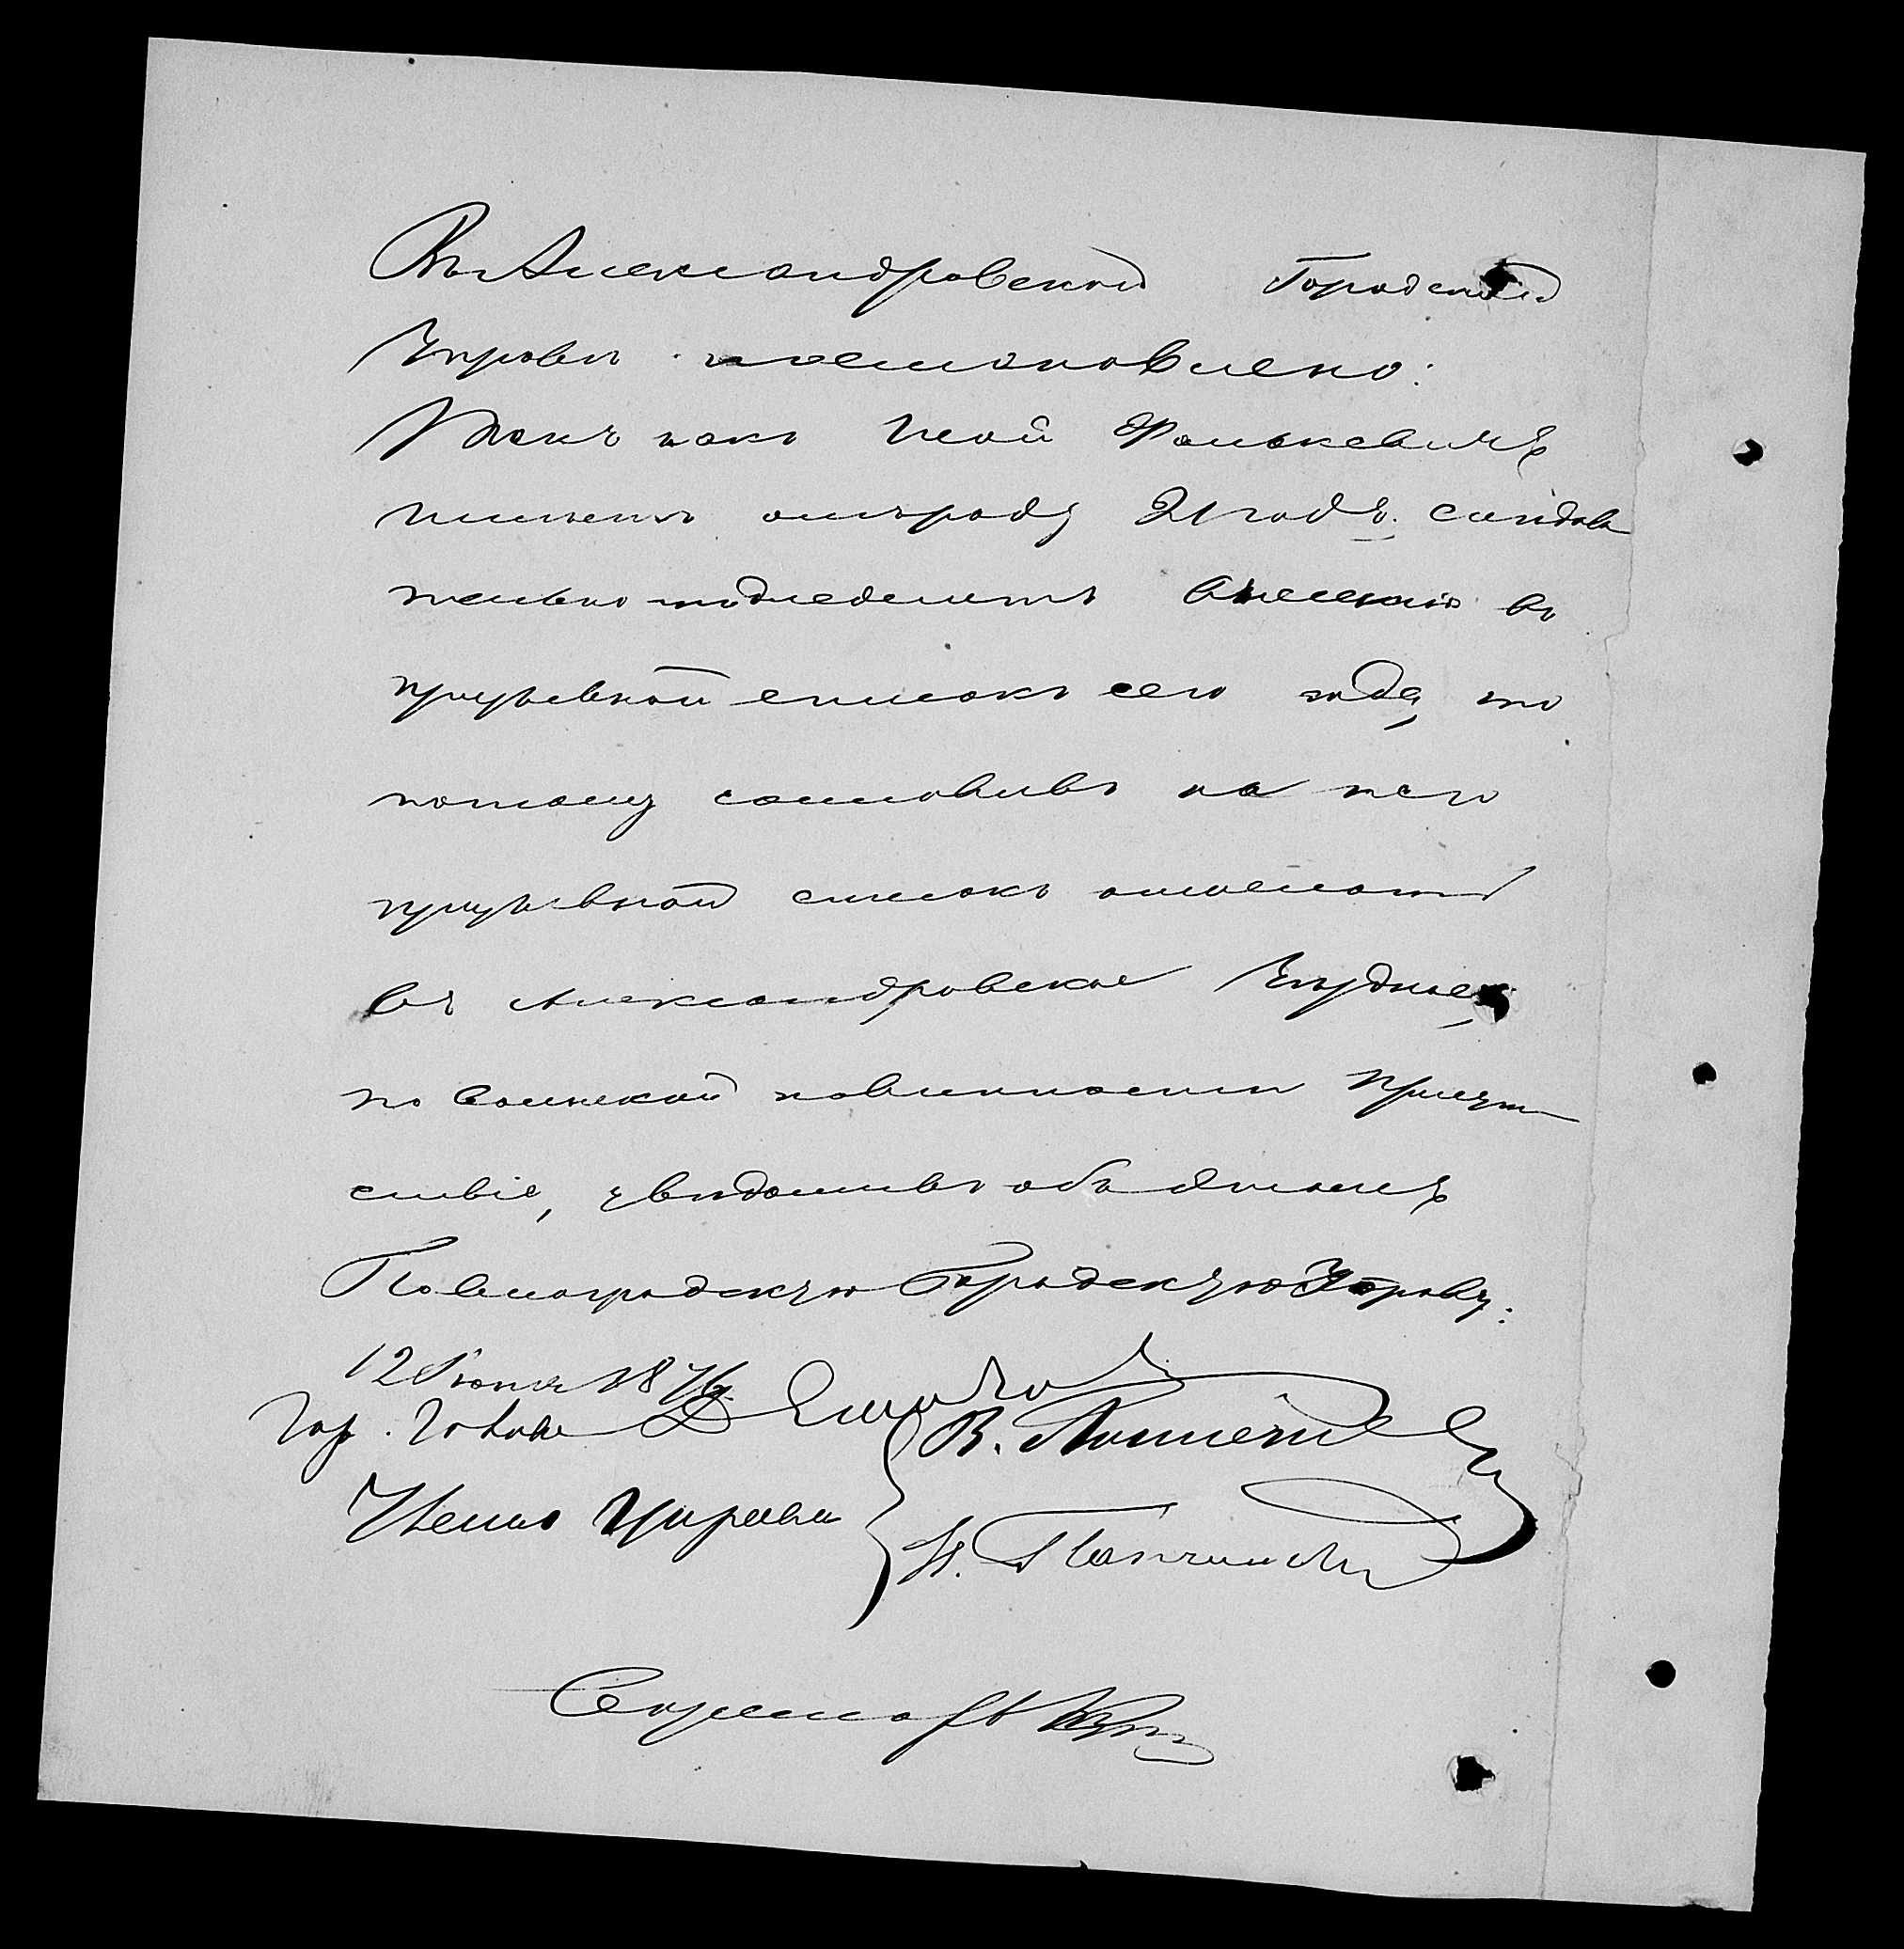 Въ Александровской Городской
Управѣ постановлено:
Такъ какъ Исай Фалькевичъ
имѣетъ отъ роду 21 годъ. слѣдова
тельно подлежитъ внесенію въ
призывной списокъ сего года, то
потому составивъ на него
призывной списокъ отослать
въ Александровское Уѣздное,
по воинской повинности Присут
ствіе, увѣдомивъ объ этомъ
Павлоградскую Городскую Управу.
12 Іюня 1876
Гор. Голова
Члены Управы
В.
Н.
Секретарь